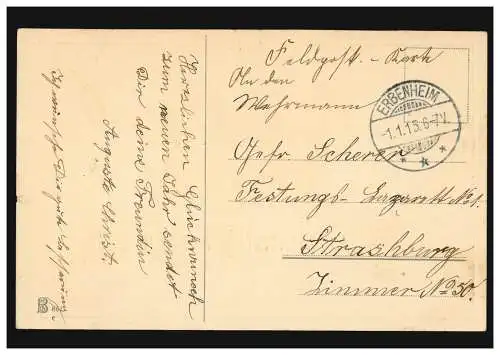 Feldpost. - Karte
An den
Wehrmann
ERBENHEIM
-1.1.15.6-7V.
Gefr. Scherer
Festungs-Lazarett No 1.
Strassburg
Zimmer No 50.
Herzlichen Glückwunsch
zum neuen Jahr sendet
Dir deine Freundin
Auguste Christ.
Ich wünsche Dir gute Besserung
B